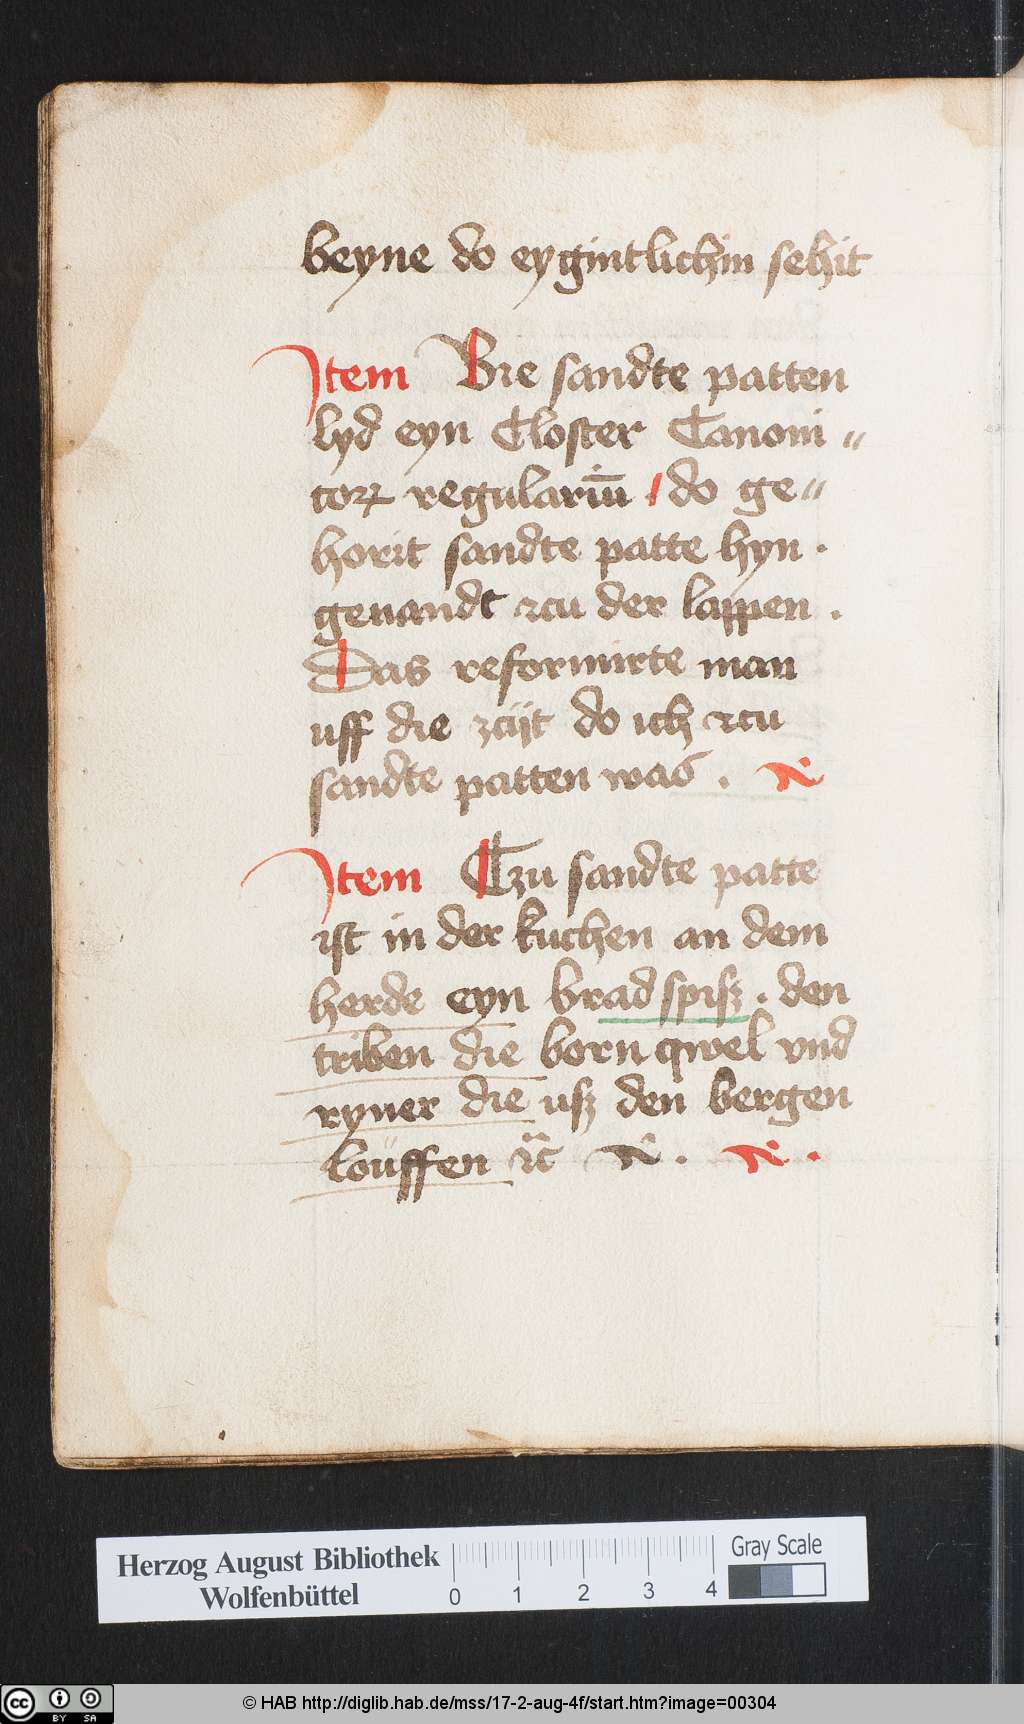 beyne do eygintlichin sehit
Item Bie sandte patten
lyd eyn Closter Canoni〃
corꝝ regulariu̅ . do ge〃
horit sandte patte hyn .
genandt zcu der lappen .
Das reformirte man
uff die zcijt do ich zcu
sandte patten was .
Item Czu sandte patte
ist in der kuchen an dem
herde eyn bradspisz . den
triben die born qwel vnd
ryner die usz den bergen
louͤffen ꝛc
Herzog August Bibliothek
Wolfenbüttel
0 1 2 3 4
Gray Scale
cc BY SA
© HAB http://diglib.hab.de/mss/17-2-aug-4f/start.htm?image=00304